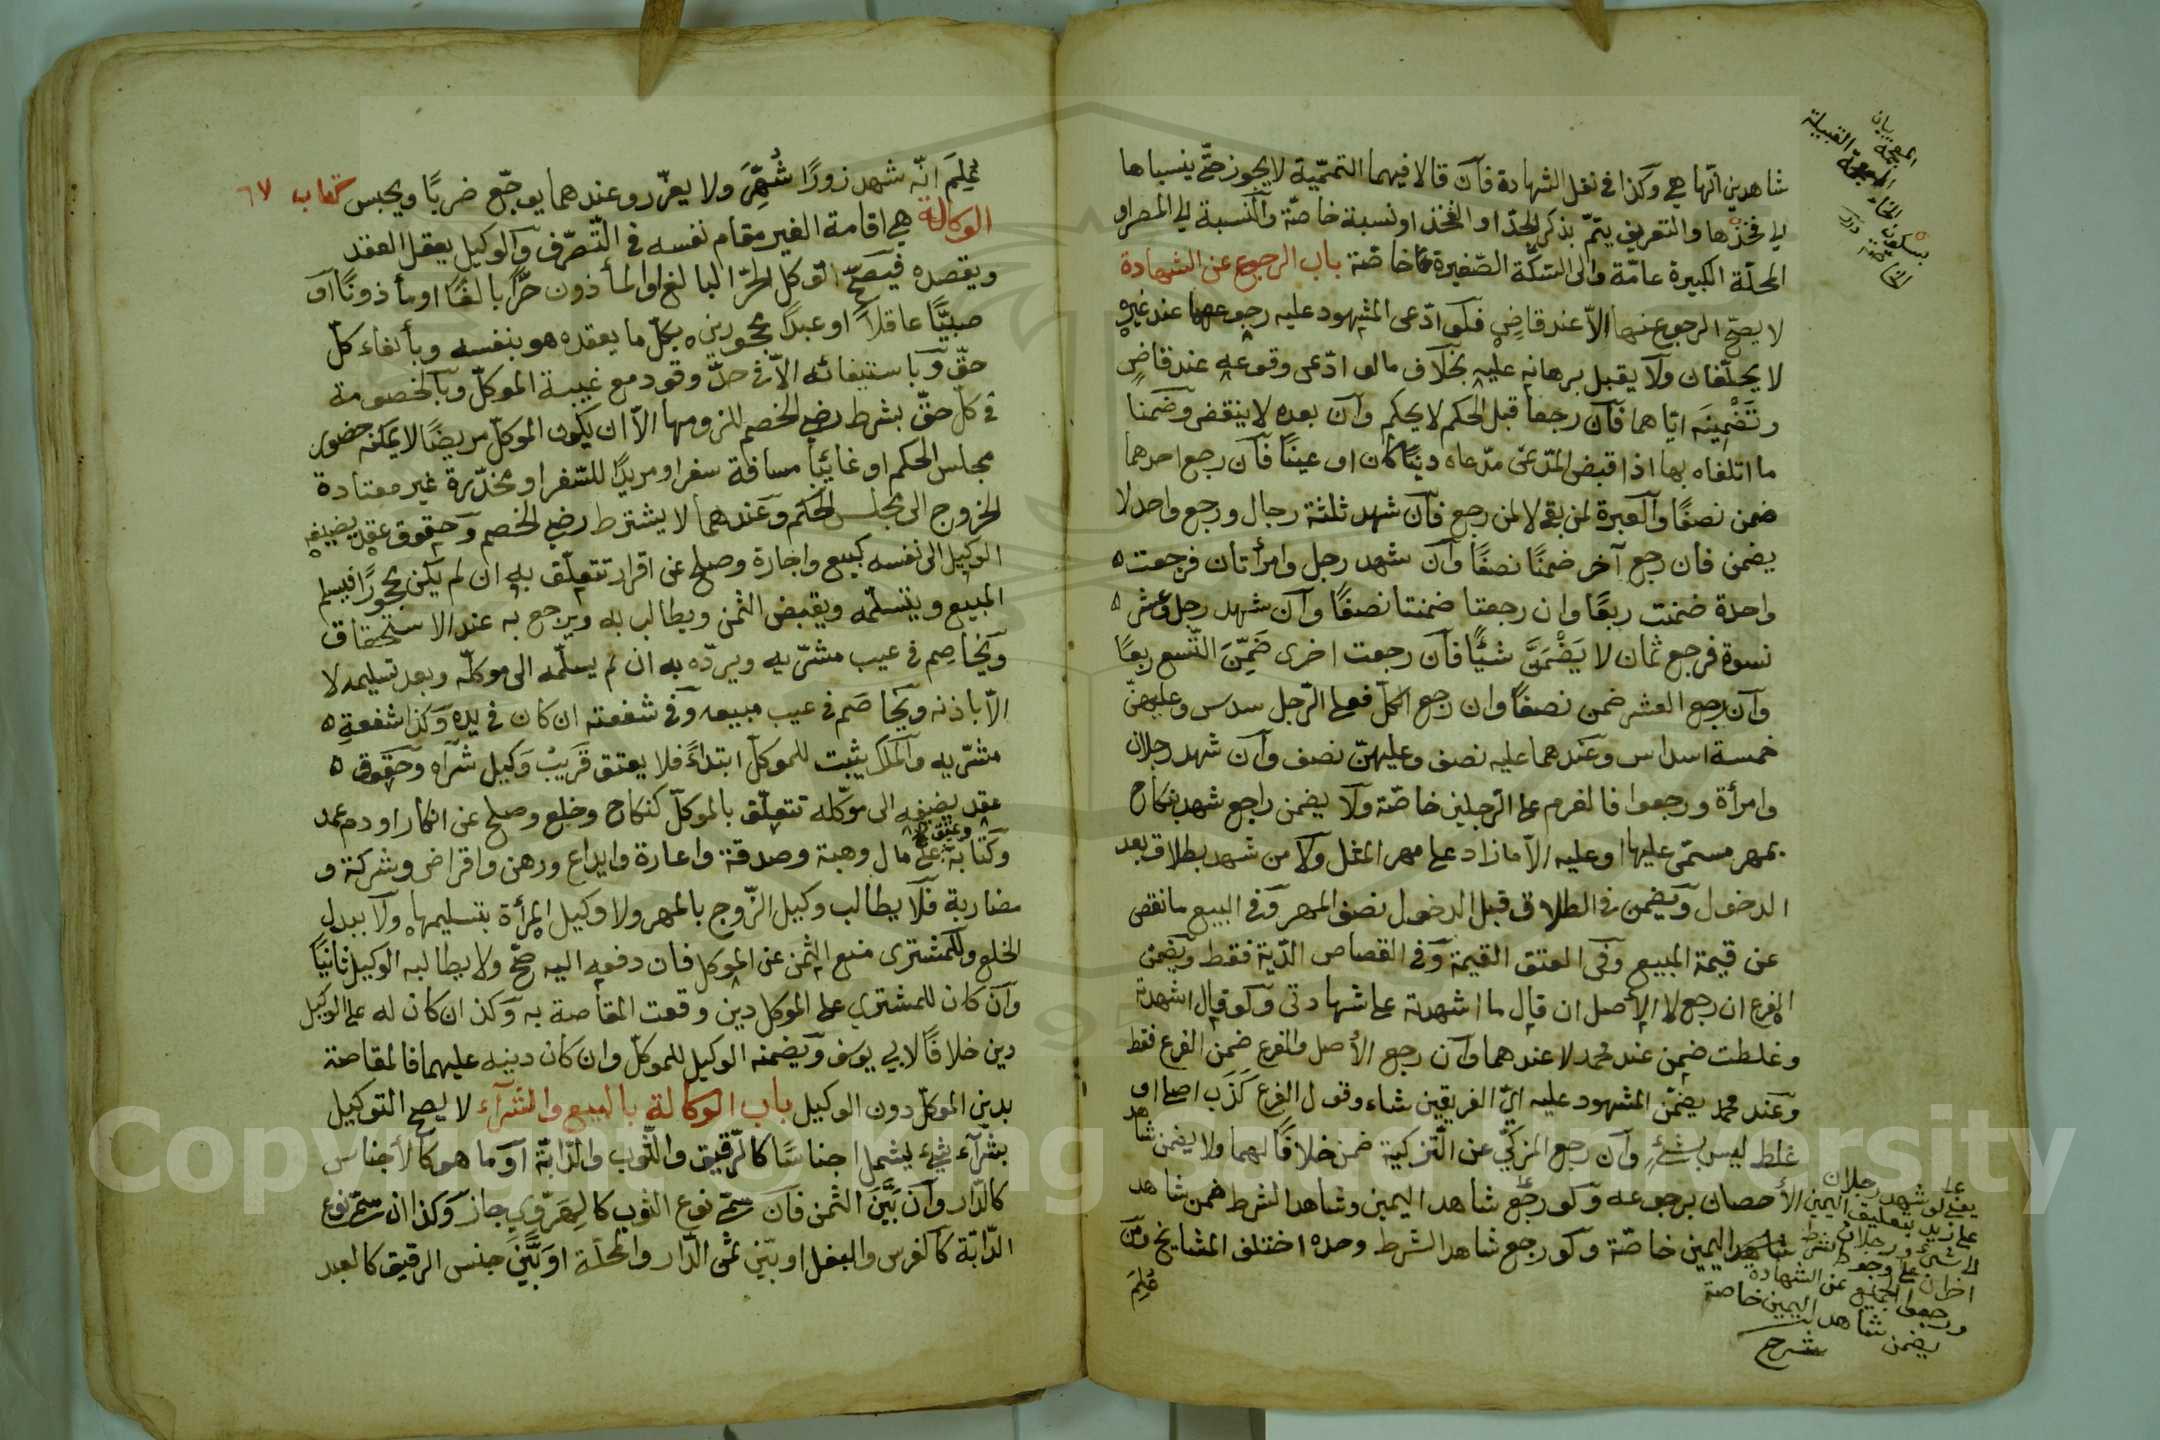 شاهدين انّها هي وكذا في نقل الشهادة فآن قالا فيهما التميميّة لا يجوز حتّى ينسباها
الى فخذها والتعريف يتمّ بذكر الجدّ او الفخذ او نسبة خاصّة والنسبة الى المصر او
المحلّة الكبيرة عامّة والى السّكّة الصّغيرة خاصّة باب الرجوع عن الشهادة
لا يصحّ الرجوع عنها الاّ عند قاضٍ فلو ادّعى المشهود عليه رجوعهما عند غيره
لا يحلّفان ولا يقبل برهانه عليه بخلاف ما لو ادّعى وقوعه عند قاضٍ
وتَضْمِينَه ايّاهما فآن رجعا قبل الحكم لا يحكم وآن بعده لا ينقض وضمنا
ما اتلفاه بها اذا قبض المدّعى مدّعاه دينًا كان او عينًا فآن رجع احدهما
ضمن نصفًا والعبرة لمن بقى لا لمن رجع فآن شهد ثلثة رجال ورجع واحد لا
يضمن فان رجع آخر ضمنًا نصفًا وآن شهد رجل وامرأتان فرجعت
واحدة ضمنت ربعًا وان رجعتا ضمنتا نصفًا وآن شهد رجل وعشر
نسوة فرجع ثمان لا يَضْمَنَّ شيئًا فآن رجعت اخرى ضَمِنَّ التّسع ربعًا
وآن رجع العشر ضمن نصفًا وان رجع الكلّ فعلى الرّجل سدس وعليهنّ
خمسة اسداس وعندهما عليه نصف وعليهنّ نصف وآن شهد رجلان
وامرأة ورجعوا فالغرم على الرّجلين خاصّة ولا يضمن راجع شهد بنكاح
بمهر مسمّى عليها او عليه الاّ ما زاد على مهر المثل ولا من شهد بطلاق بعد
الدخول ويضمن في الطلاق قبل الدخول نصف المهر وفي البيع ما نقص
عن قيمة المبيع وفى العتق القيمة وفي القصاص الدّية فقط ويضمن
الفرع ان رجع لا الاصل ان قال ما اشهدته على شهادتى ولو قال اشهدته
وغلطت ضمن عند محمد لا عندهما وآن رجع الأصل والفرع ضمن الفرع فقط
وعند محمد يضمّن المشهود عليه ايّ الفريقين شاء وقول الفرع كَذَب اصلى او
غلط ليس بشئٍ وآن رجع المزكّي عن التّزكية ضمن خلافًا لهما ولا يضمن شاهد
الأحصان برجوعه ولو رجع شاهد اليمين وشاهد الشرط ضمن شاهد
اليمين خاصّة ولو رجع شاهد الشرط وحده اختلف المشايخ ومن
عُلِمَ
يعني لو شهد رجلان
على زيد بتعليق اليمين
ورجعوا الجميع عن الشهادة
يضمن شاهد اليمين خاصة
شرح
عُلِمَ انّه شهد زورًا شُهِّرَ ولا يعزّر وعندهما يوجّع ضربًا ويحبس كتاب ٦٧
الوكالة هي اقامة الغير مقام نفسه في التّصرّف والوكيل يعقل العقد
ويقصده فيصحّ توكل الحرّ البالغ او المأذون حرًّا بالغًا او مأذونًا او
صبيًّا عاقلاً او عبدًا محجورين بكلّ ما يعقده هو بنفسه وبأيفاء كلّ
حقّ وباستيفائه الاّ في حدّ وقود مع غيبة الموكلّ وبالخصومة
في كلّ حقّ بشرط رضى الخصم للزومها الاّ ان يكون الموكلّ مريضًا لا يمكنه حضور
مجلس الحكم او غائبًا مسافة سفر او مريدًا للسّفر او مخدّرة غير معتادة
الخروج الى مجلس الحكم وعندهما لا يشترط رضى الخصم وحقوق عقد يضيفه
الوكيل الى نفسه كبيع واجارة وصلح عن اقرار تتعلّق به ان لم يكن محجورًا فيسلم
المبيع ويتسلّمه ويقبض الثمن ويطالب به ويرجع به عند الاستحقاق
ويخاصِم في عيب مشريّه ويردّه به ان لم يسلّمه الى موكلّه وبعد تسليمه لا
الاّ باذنه ويخاصَم في عيب مبيعه وفى شفعته ان كان في يده وكذا شفعةِ
مشريّه والملك يثبت للموكلّ ابتداءً فلا يعتق قَريبُ وَكيل شرآه وحقوق
عقد يضيفه الى موكّله تتعلّق بالموكلّ كنكاح وخلع وصلح عن انكار او دم عمد
وعتق على مال وكتابة وهبة وصدقة واعارة وايداع ورهن واقراض وشركة و
مضاربة فلا يطالب وكيل الزّوج بالمهر ولا وكيل المرأة بتسليمها ولا ببدل
الخلع وللمشترى منع الثمن عن الموكل فان دفعه اليه صحّ ولا يطالبه الوكيل ثانيًا
وآن كان للمشتري على الموكل دين وقعت المقاصة به وكذا ان كان له على الوكيل
دين خلافًا لابي يوسف ويضمنه الوكيل للموكلّ وان كان دينه عليهما فالمقاصة
بدين الموكلّ دون الوكيل باب الوكالة بالبيع والشرآء لا يصح التوكيل
بشرآء شيء يشمل اجناسًا كالرّقيق والثّوب والدّابّة او ما هو كالأجناس
كالدّار وآن بَيَّنَ الثمن فآن سمّى نوع الثوب كالهَرَوِي جاز وكذا ان سمّى نوع
الدّابّة كالفرس والبغل او بيّن ثمن الدّار والمحلّة او بيَّن جنس الرقيق كالعبد